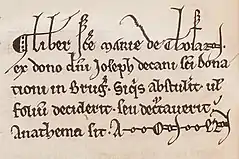 Liber sce marie de Thosan.
ex dono dni Joseph decani sci dona
tiani in Brug. Siqs abstulit ul'
foliu deciderit. seu dectauerit
Anathema sit. A